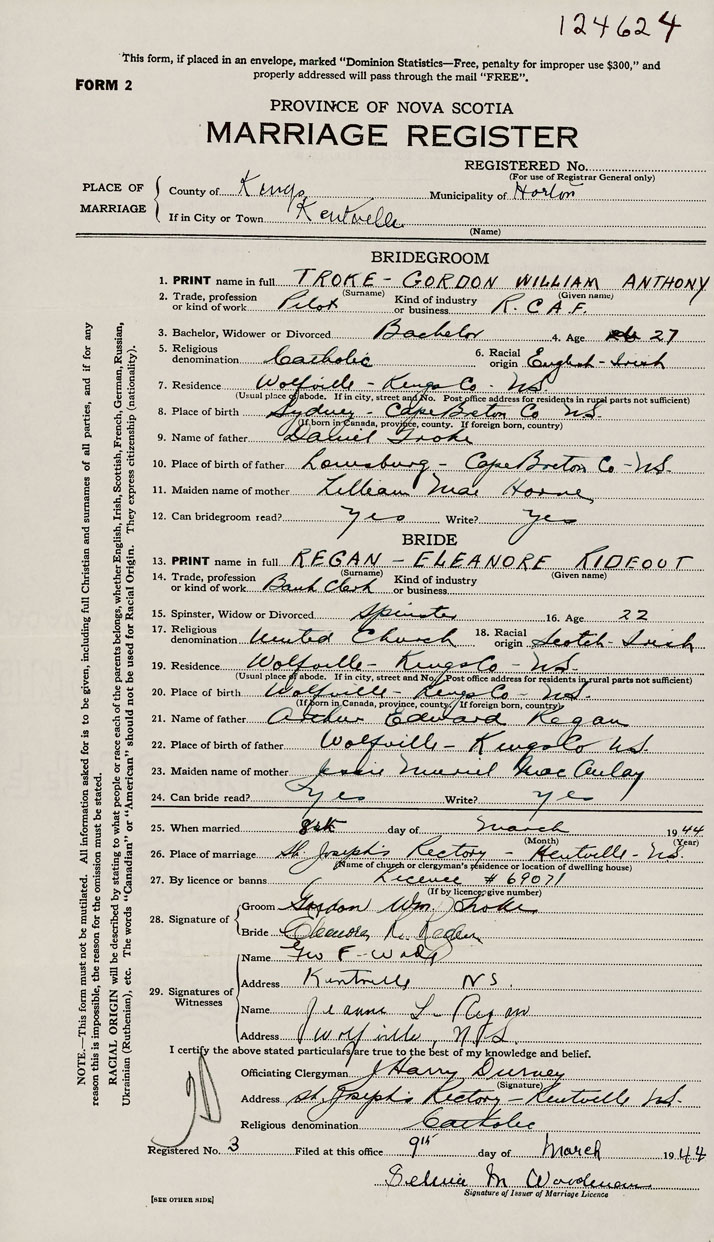 124624
This form, if placed in an envelope, marked "Dominion Statistics—Free, penalty for improper use $300," and
properly addressed will pass through the mail "FREE".
FORM 2
PROVINCE OF NOVA SCOTIA
MARRIAGE REGISTER
REGISTERED No.
(For use of Registrar General only)
PLACE OF MARRIAGE
County of Kings Municipality of Horton
If in City or Town Kentville
(Name)
BRIDEGROOM
1. PRINT name in full TROKE - GORDON WILLIAM ANTHONY
(Surname) (Given name)
2. Trade, profession or kind of work Pilot Kind of industry or business R.C.A.F.
3. Bachelor, Widower or Divorced Bachelor 4. Age 27
5. Religious denomination Catholic 6. Racial origin English - Irish
7. Residence Wolfville - Kings Co - NS.
(Usual place of abode. If in city, street and No. Post office address for residents in rural parts not sufficient)
8. Place of birth Sydney - Cape Breton Co NS.
(If born in Canada, province, county. If foreign born, country)
9. Name of father Daniel Troke
10. Place of birth of father Louisburg - Cape Breton Co - NS.
11. Maiden name of mother Lilliam Mae Horne
12. Can bridegroom read? Yes Write? Yes
BRIDE
13. PRINT name in full REGAN - ELEANORE RIDEOUT
(Surname) (Given name)
14. Trade, profession or kind of work Bank Clerk Kind of industry or business
15. Spinster, Widow or Divorced Spinster 16. Age 22
17. Religious denomination United Church 18. Racial origin Scotch - Irish
19. Residence Wolfville - Kings Co - NS.
(Usual place of abode. If in city, street and No. Post office address for residents in rural parts not sufficient)
20. Place of birth Wolfville - Kings Co - NS.
(If born in Canada, province, county. If foreign born, country)
21. Name of father Arthur Edward Regan
22. Place of birth of father Wolfville - Kings Co NS.
23. Maiden name of mother Jessie Muriel MacAulay
24. Can bride read? Yes Write? yes
25. When married 8th day of March 1944
(Month) (Year)
26. Place of marriage St. Joseph's Rectory - Kentville - NS.
(Name of church or clergyman's residence or location of dwelling house)
27. By licence or banns Licence # 69071
(If by licence, give number)
28. Signature of
Groom Gordon Wm. Troke
Bride Eleanore R. Regan
29. Signatures of Witnesses
Name Geo F - Wade
Address Kentville NS.
Name Jeanne L. Regan
Address Wolfville, N.S.
I certify the above stated particulars are true to the best of my knowledge and belief.
Officiating Clergyman J Harry Durney
(Signature)
Address St. Joseph's Rectory - Kentville NS.
Religious denomination Catholic
Registered No. 3 Filed at this office 9th day of March 1944
M Woodman
Signature of Issuer of Marriage Licence
[SEE OTHER SIDE]
NOTE.—This form must not be mutilated. All information asked for is to be given, including full Christian and surnames of all parties, and if for any
reason this is impossible, the reason for the omission must be stated.
RACIAL ORIGIN will be described by stating to what people or race each of the parents belongs, whether English, Irish, Scottish, French, German, Russian,
Ukrainian (Ruthenian), etc. The words "Canadian" or "American" should not be used for Racial Origin. They express citizenship (nationality).